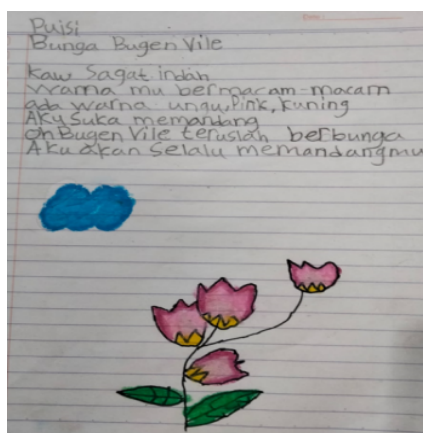 Puisi
Bunga Bugen Vile
Kaw Sagat indah
Warna mu bermacam-macam
ada warna ungu, Pink, kuning
Aku Suka memandang
oh Bugen Vile teruslah berbunga
Aku akan Selalu memandangmu